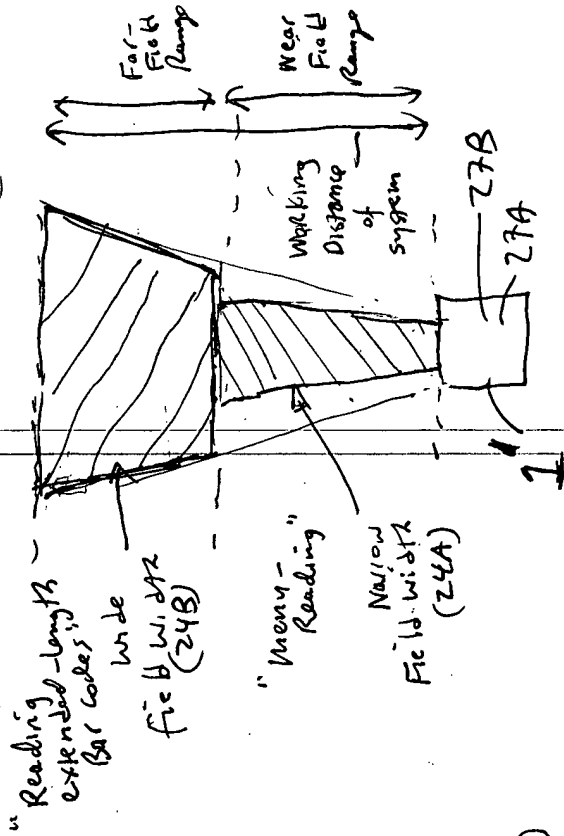 "Reading
extended-length
Bar codes"
wide
field width
(24B)
"Menu-
Reading"
Narrow
Field width
(24A)
Far-
Field
Range
Near
Field
Range
Working
Distance
of
system
27B
27A
1